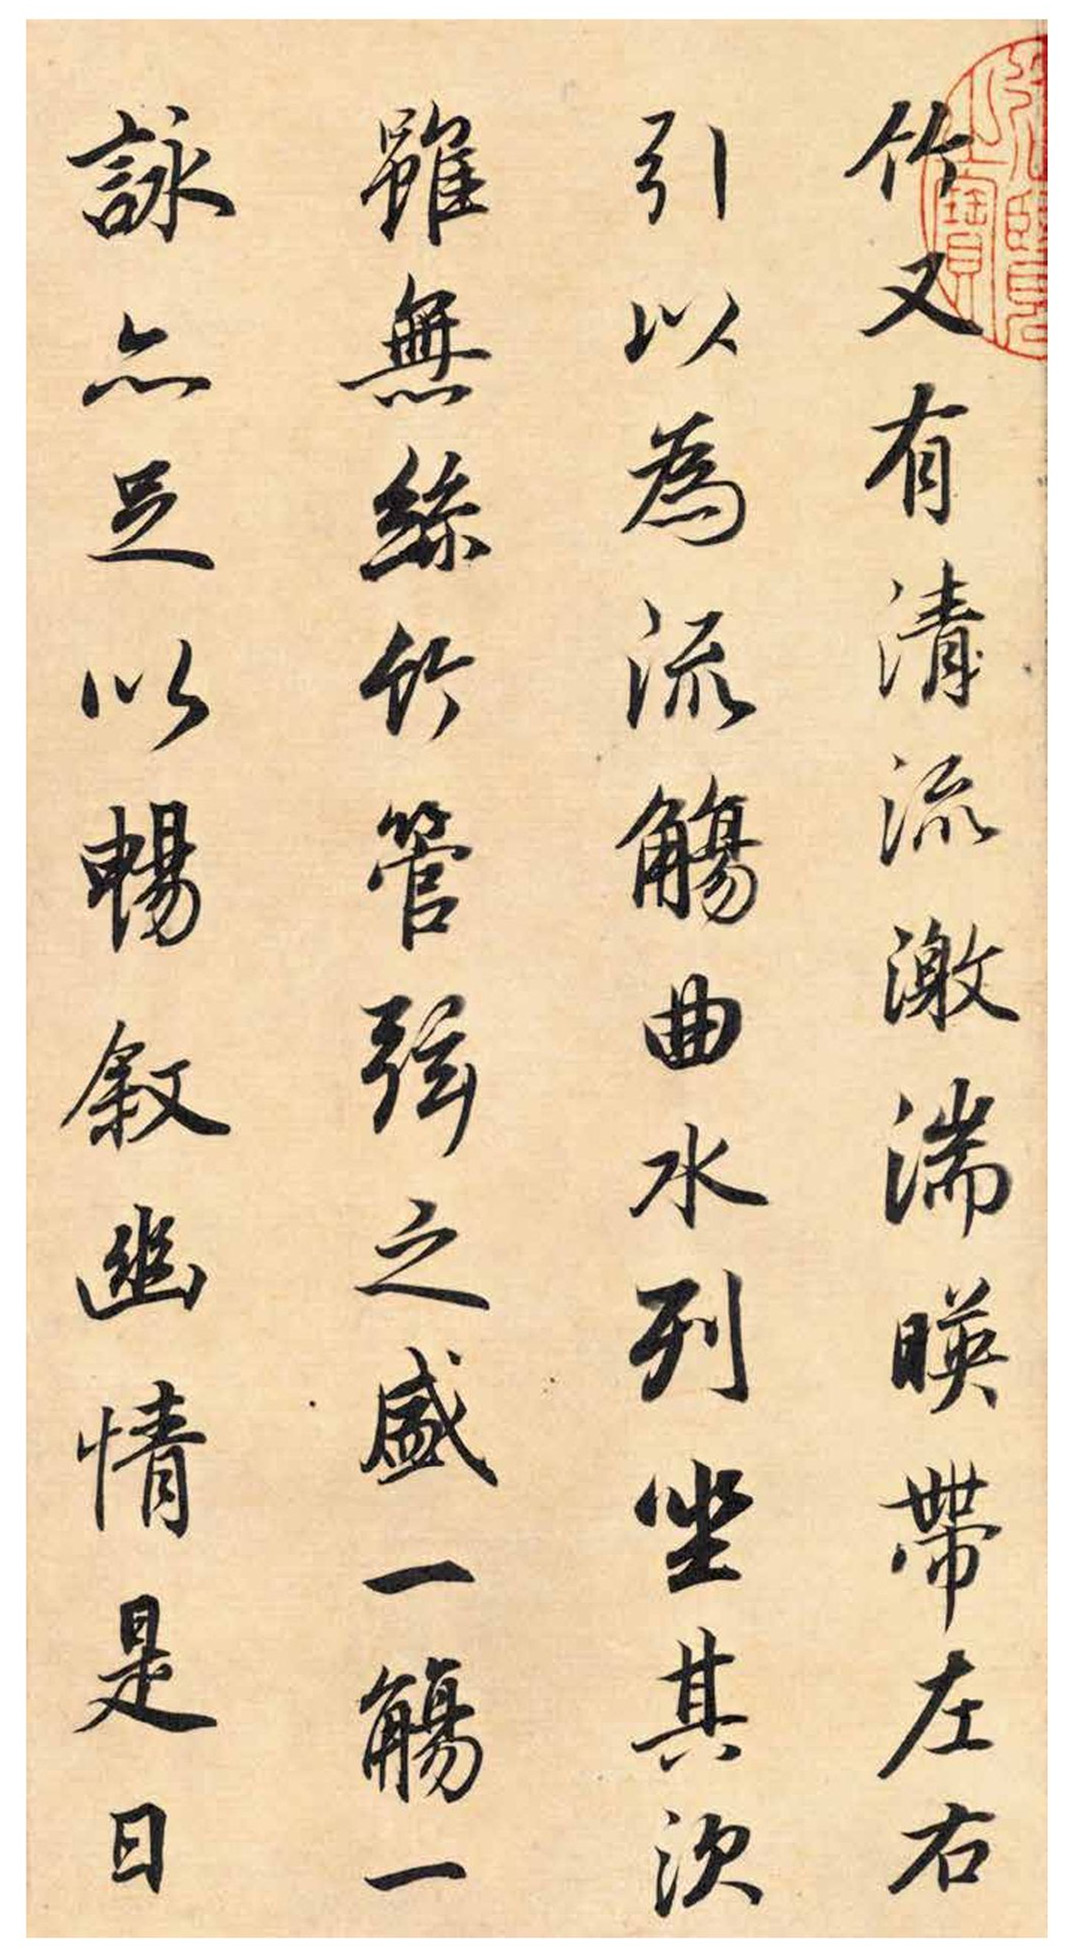 竹又有清流激湍暎帶左右
引以為流觴曲水列坐其次
雖無絲竹管弦之盛一觴一
詠亦足以暢敘幽情是日